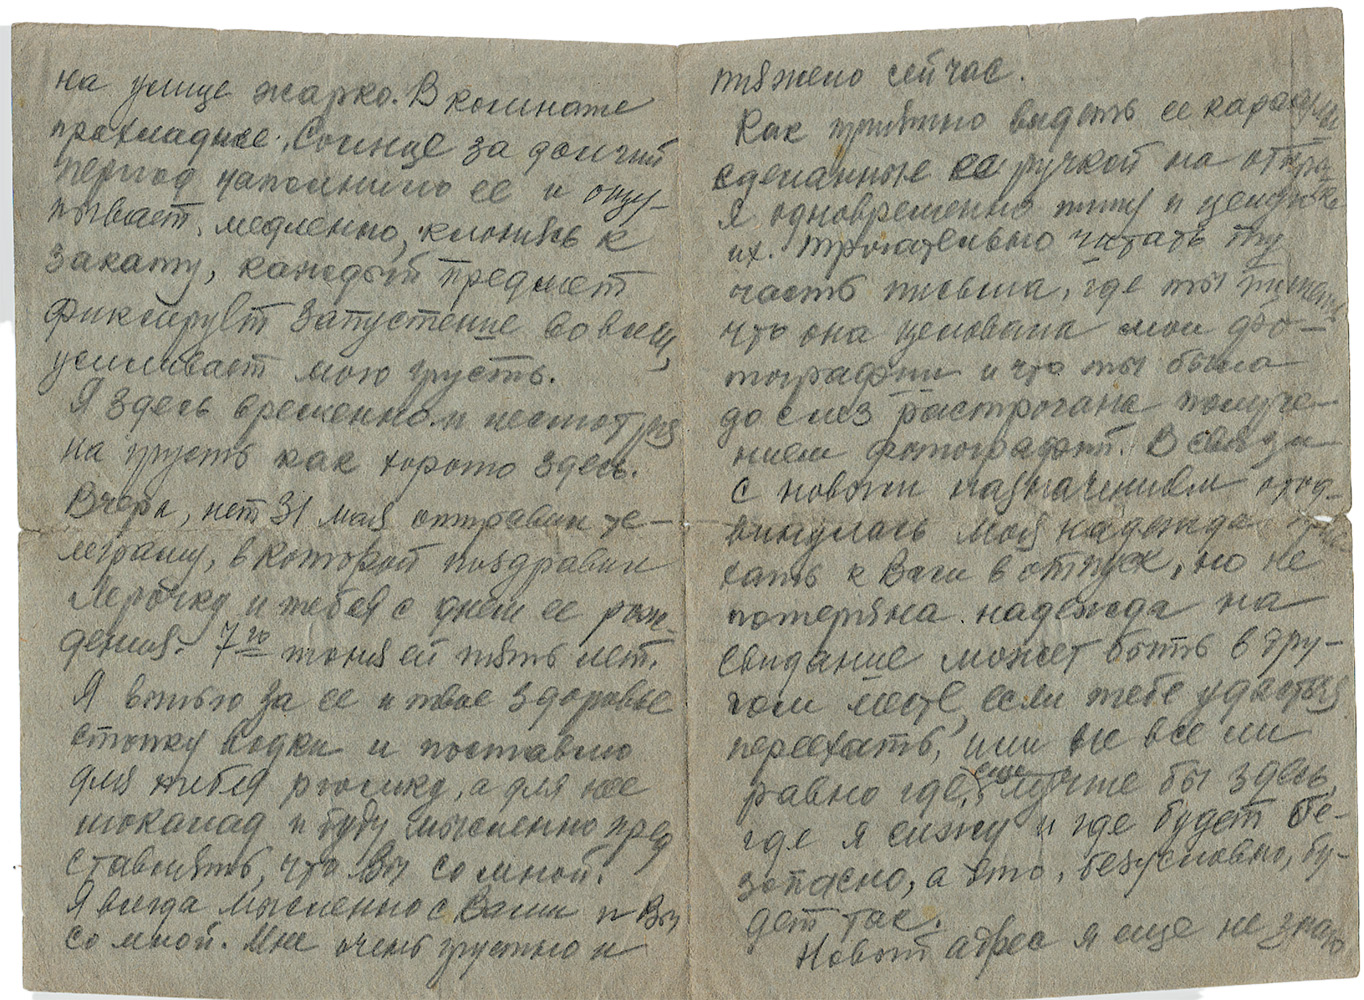 на улице жарко. В комнате
прохладнее. Солнце за долгий
период наполнило ее и ощу-
пывает, медленно, клонясь к
закату, каждый предмет
фиксирует запустение во всем,
усиливает мою грусть.
Я здесь временно и несмотря
на грусть как хорошо здесь.
Вчера, нет 31 мая отправил те-
леграмму, в которой поздравил
Лерочку и тебя с днем ее рож-
дения. 7го июня ей пять лет.
Я выпью за ее и твое здоровье
стопку водки и поставлю
для тебя рюмку, а для нее
шоколад и буду мысленно пред
ставлять, что Вы со мной.
Я всегда мысленно с Вами и Вы
со мной. Мне очень грустно и
тяжело сейчас.
Как приятно видеть ее
сделанные ее ручкой на
Я одновременно пишу и целую
их. Трогательно читать ту
часть письма, где ты пишешь,
что она целовала мои фо-
тографии и что ты была
до слез растрогана получе-
нием фотографий. В связи
с новым назначением отод-
винулась моя надежда прие
хать к Вам в отпуск, но не
потеряна надежда на
свидание может быть в дру-
гом месте, если тебе удастся
переехать, или не все ли
равно где, еще лучше бы здесь,
где я сижу и где будет бе-
зопасно, а это, безусловно, бу-
дет так.
Новый адрес я еще не знаю